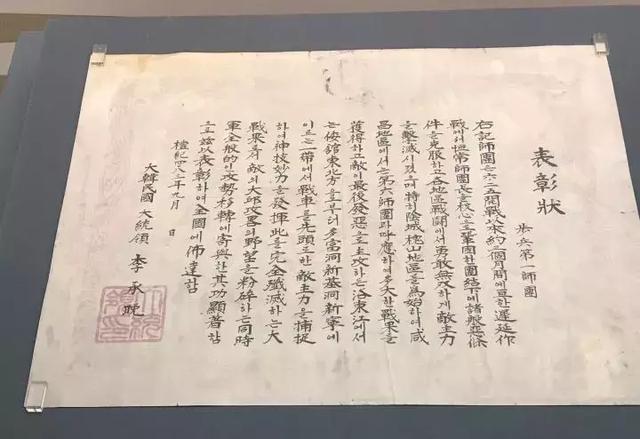 表彰狀
步兵第一師團
右記師團은六二五開戰以來約二個月間에亘한遲延作
戰에서恒常師團長을核心으로鞏固한團結下에諸般惡條
件을克服하고各地區戰鬪에서勇敢無双하게敵主力
을擊滅시켰으며特히陰城槐山地區를爲始하여咸
昌地區에서는第六師團과呼應하여多大한戰果를
獲得하고敵이最後發惡으로主攻하는洛東江에서
는倭舘東北方으로부터多富洞新基洞新寧에
이르는一帶에서戰車를先頭로한敵主力을捕捉
하여神技妙力을發揮此를完全殲滅하는大
戰果를거두어敵의大邱攻略의野望을粉碎하는同時
軍全般的인攻勢移轉에寄與한其功顯著함
으로玆以表彰하여全國에佈達함
檀紀四二八三年九月 日
大韓民國 大統領 李承晩